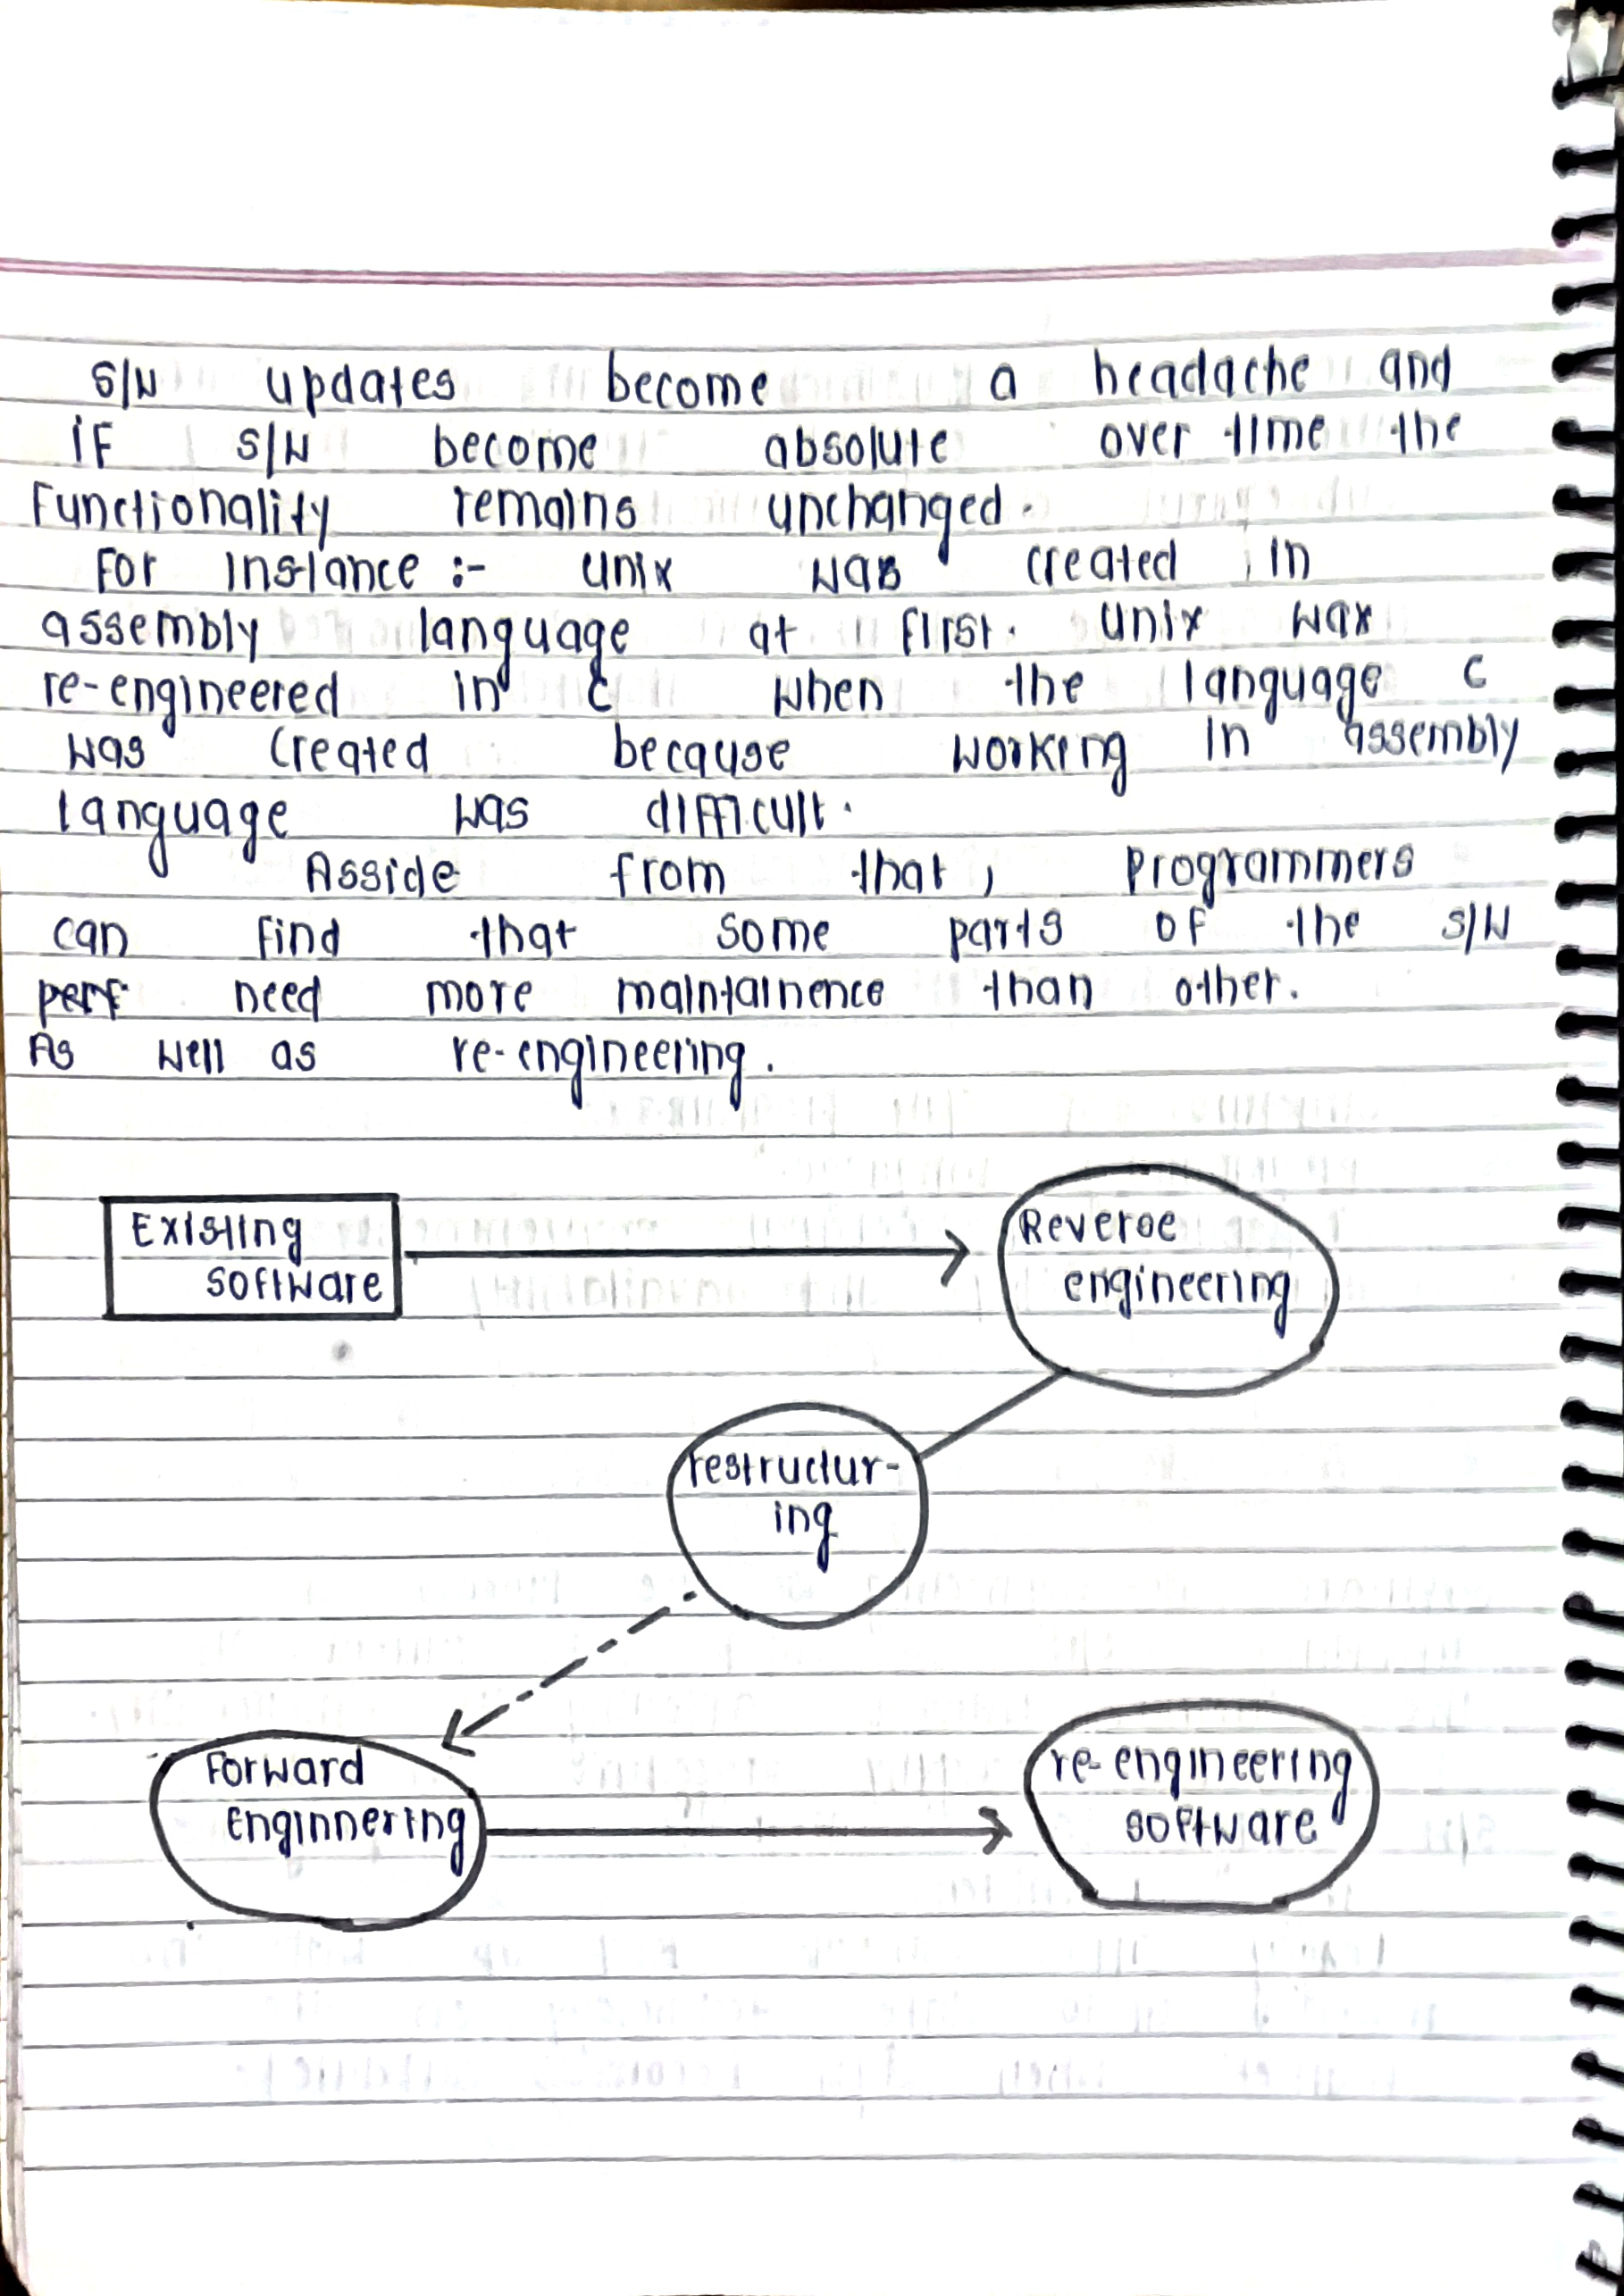 S/W updates become a headache and
if S/W become absolute over time the
Functionality remains unchanged.
For Instance :- Unix was created in
assembly language at first. Unix wax
re-engineered in C when the language C
was created because working in assembly
language was difficult.
Asside from that, Programmers
can find that some parts of the S/W
perf need more maintainence than other.
As well as re-engineering.
Existing
software
Reverse
engineering
restructur-
ing
Forward
Enginnering
re-engineering
software